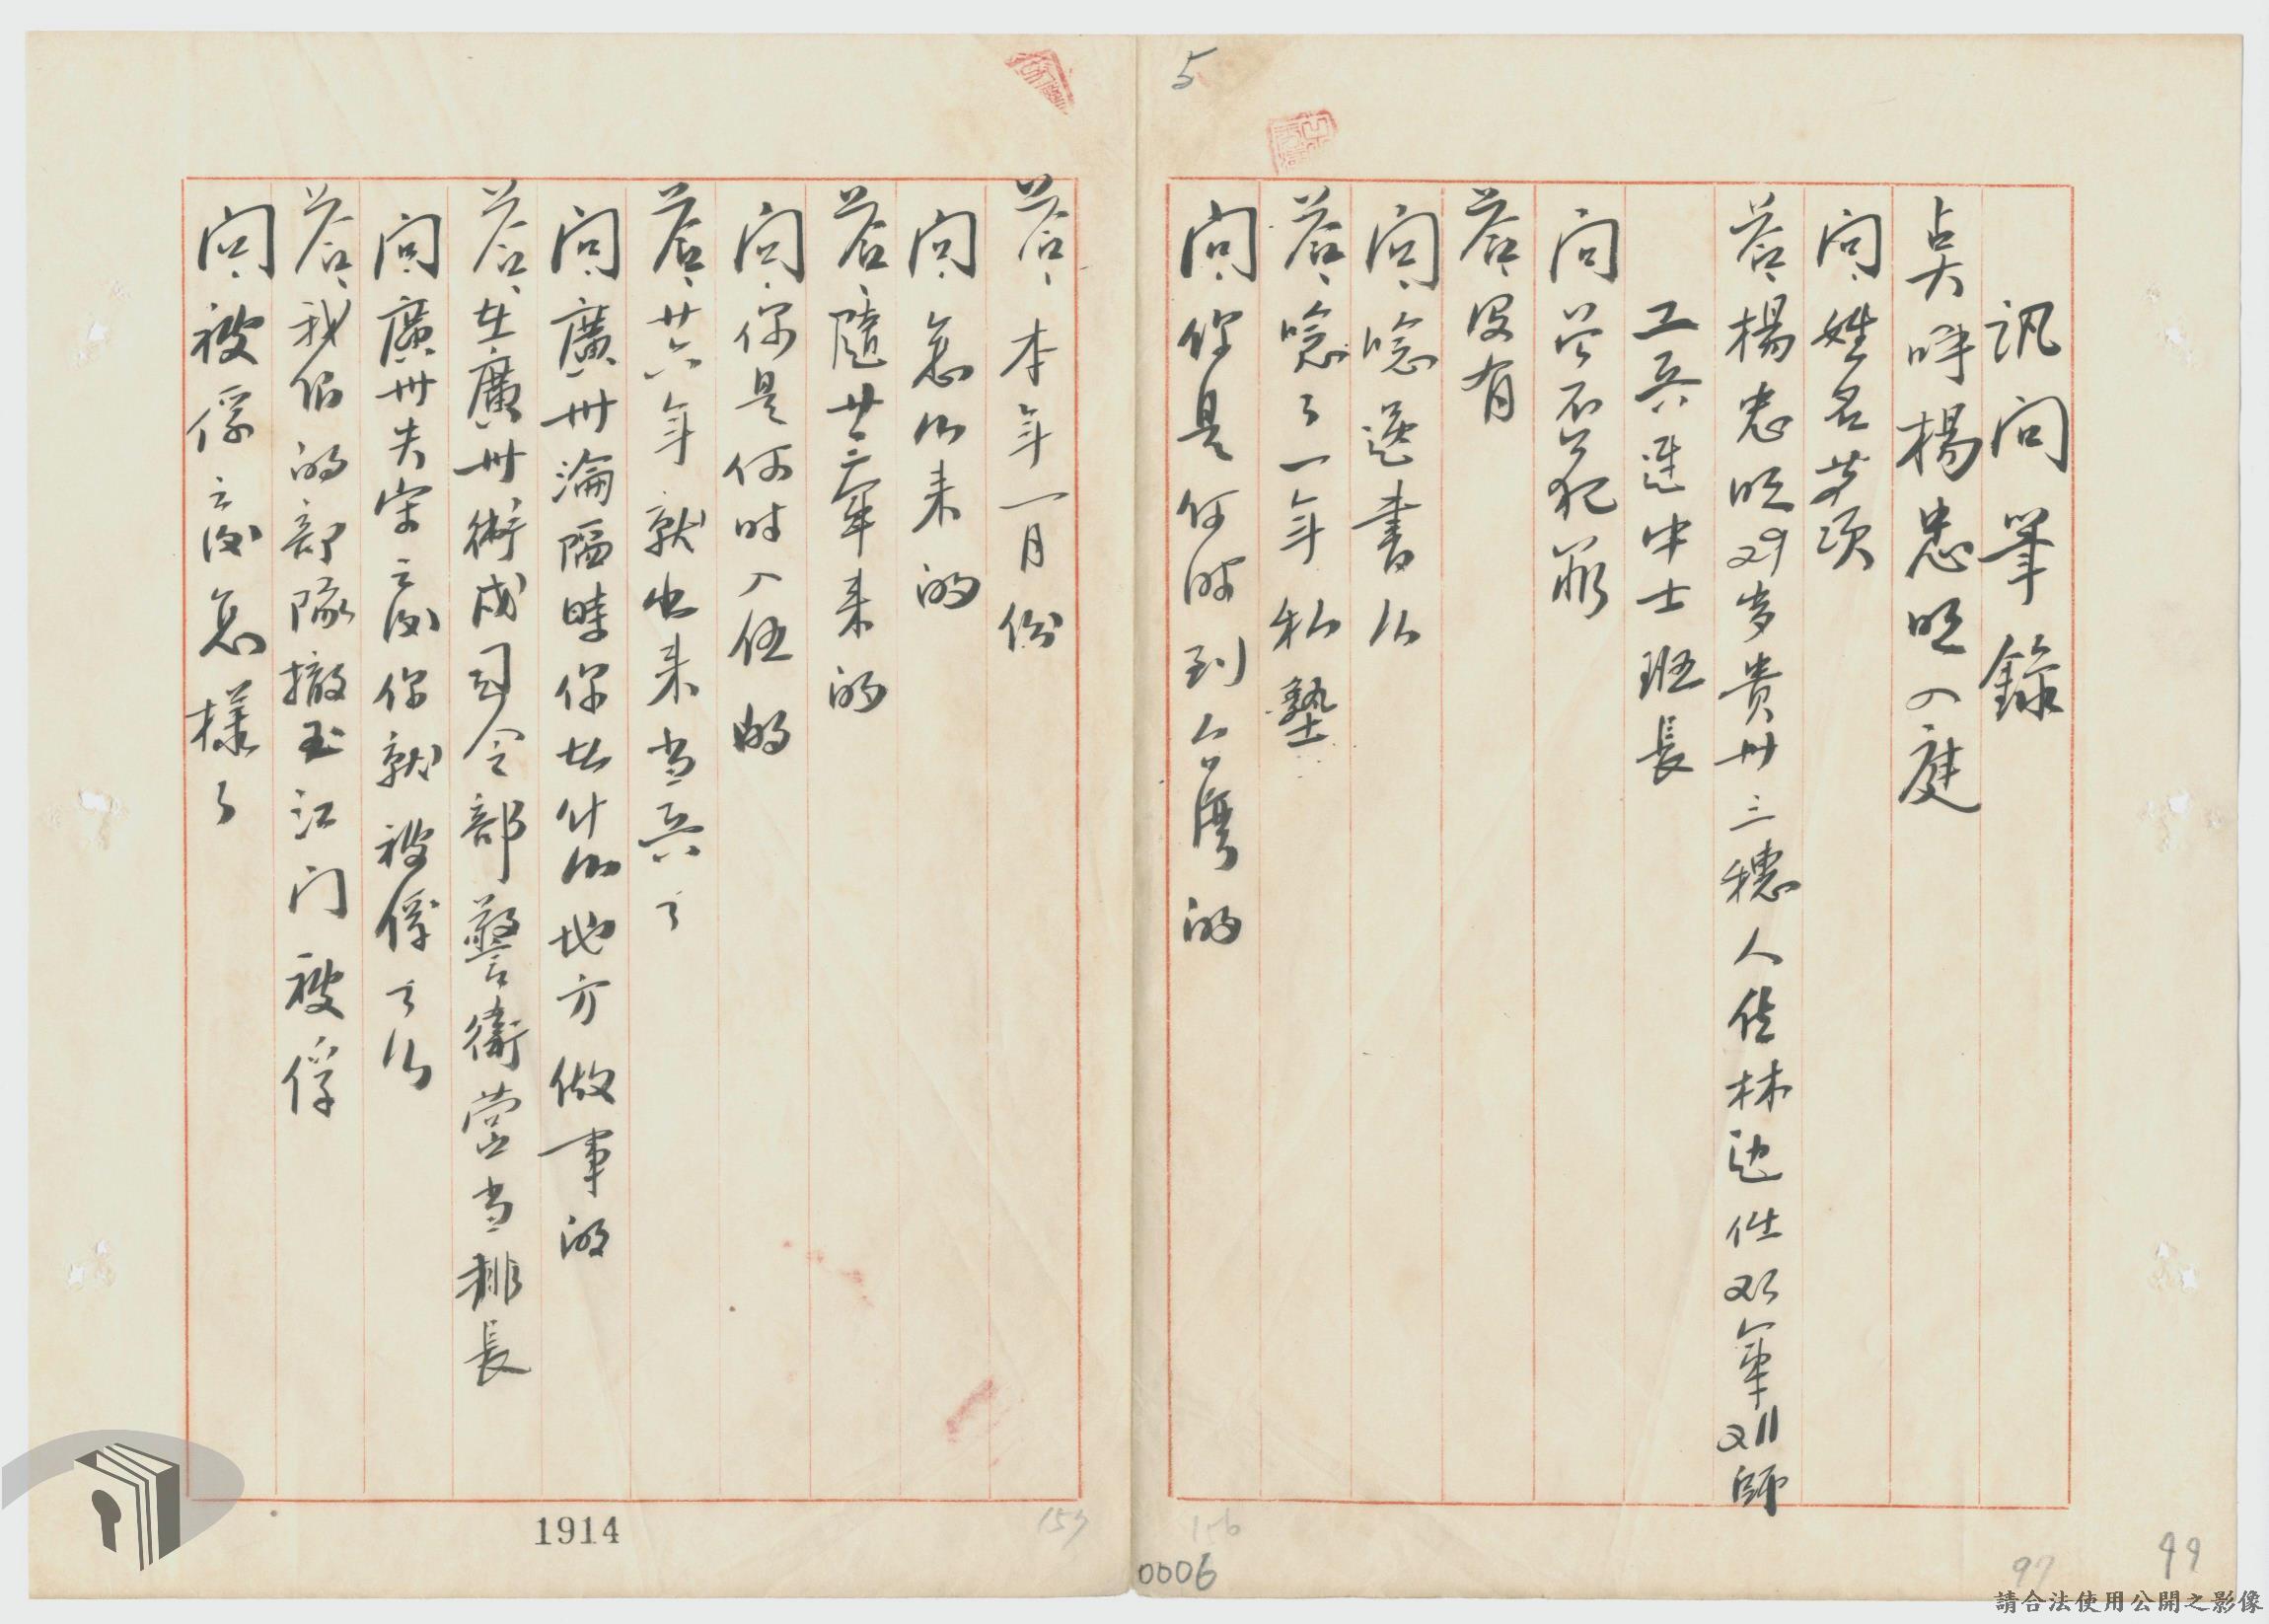 5
訊問筆錄
点呼楊忠旺入庭
問、姓名等項
答、楊忠旺29歲貴州三穗人住林边仕 軍211師
工兵連中士班長
問 曾否犯罪
答、没有
問、唸過書么
答、唸了一年私塾
問、你是何時到台灣的
答、本年一月份
問、怎么来的
答、隨 軍来的
問、你是何時入伍的
答、廿六年就出来当兵了
問、廣州淪陷時你在什么地方做事的
答、在廣州衛戍司令部警衛營当排長
問、廣州失守之後你就被俘了么
答、我們的部隊撤至江门被俘
問、被俘之後怎樣了
1914
157
156
0006
97
99
請合法使用公開之影像